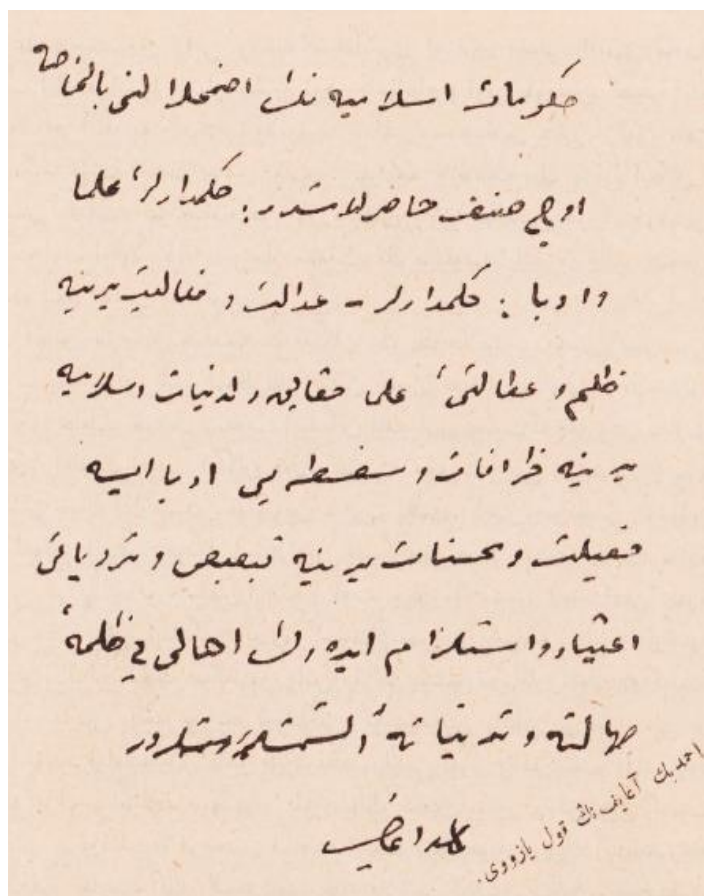 حكومات اسلاميه نك اضمحلالنى بالخاصه
اوچ صنف حاضرلامشدر: حكمدارلر، علما
و ادبا : حكمدارلر – عدالت و فعاليت يرينه
ظلم و عطالتى، علما حقايق و مدنيات اسلاميه
يرينه خرافات و سفسطه يى ادبا ايسه
فضيلت و محسنات يرينه تبصبص و
اعتياد و استلزام ايده رك اهالى يى ظلمه،
جهالته و تدنياته
احمد بك آغايف بك قول يازووى.